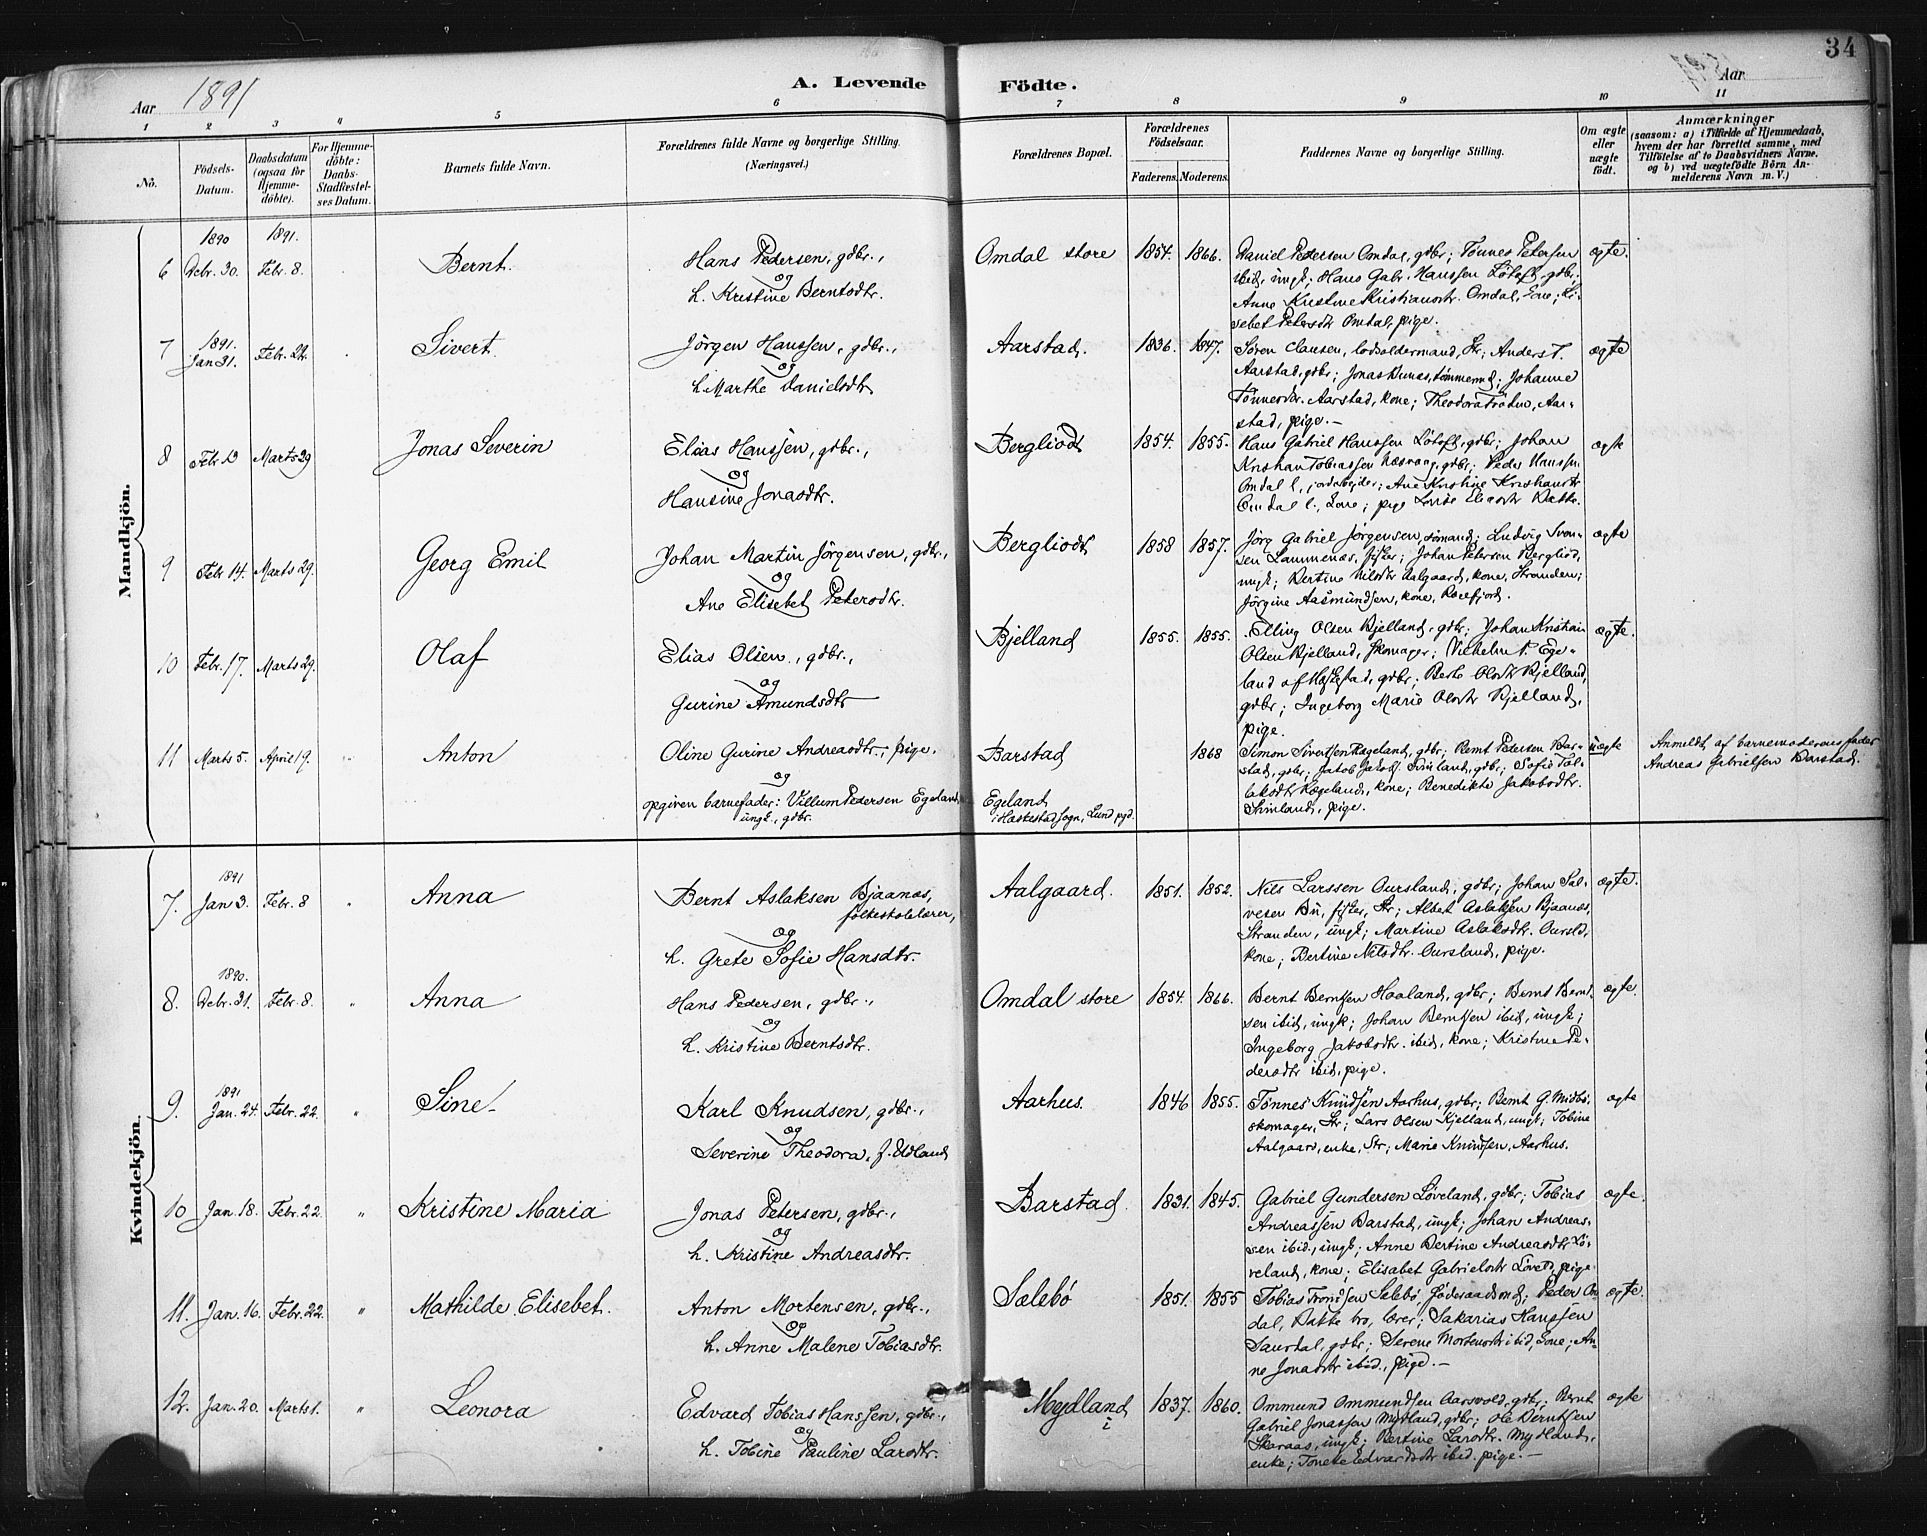 34
Aar 1891
A. Levende Födte.
Aar
1 2 3 4 5 6 7 8 9 10 11
No.
Födsels-Datum.
Daabsdatum (ogsaa for Hjemmedöbte).
For Hjemmedöbte: Daabs-Stadfæstelses Datum.
Barnets fulde Navn.
Forældrenes fulde Navne og borgerlige Stilling. (Næringsvei.)
Forældrenes Bopæl.
Forældrenes Födselsaar.
Faderens. Moderens.
Faddernes Navne og borgerlige Stilling.
Om ægte eller uægte födt.
Anmærkninger
(saasom: a) i Tilfælde af Hjemmedaab,
hvem der har forrettet samme, med
Tilföielse af to Daabsvidners Navne.
og b) ved uægtefödte Börn An-
melderens Navn m. V.)
Mandkjön.
1890 1891.
6 Debr. 30. Febr. 8. Bernt. Hans Pedersen, gdbr., Omdal store 1854. 1866. ægte.
og
h. Kristine Berntsdtr.
Daniel Pedersen Omdal, gdbr; Tønnes Petersen
ibid, ungk; Hans Gabr. Hanssen Løtoft, gdbr;
Anne Kristine Kristiansdtr. Omdal, kone; Li-
sebet Petersdtr Omdal, pige.
1891.
7 Jan 31. Febr. 22. Sivert. Jörgen Hanssen, gdbr., Aarstad. 1836. 1847. ægte
og
h. Marthe Danielsdtr
Søren Clausen, lodsoldermand, Str; Anders T.
Aarstad, gdbr; Jonas Dunas, tømmermd; Johanne
Tönnesdtr. Aarstad, kone; Theodora Aar-
stad, pige.-
8 Febr 13 Marts 29 Jonas Severin Elias Hanssen, gdbr., Bergliodt 1854. 1855. ægte
og
Hansine Jonasdtr.
Hans Gabriel Hanssen Løtoft, gdbr; Johan
Kristian Tobiassen Næsvaag, gdbr; Peder Hanssn.
Omdal l., jordarbejder; Ane Kristine Kristiansdtr
Omdal l., kone; pige Lovise Eliasdtr Bakke.
9 Febr 14. Marts 29. Georg Emil Johan Martin Jörgensen, gdbr., Bergliodt 1858 1857. ægte
og
Ane Elisebet Petersdtr.
Jörg Gabriel Jørgensen, sømand; Ludvig Svan-
sen Lammenæs, fisker; Johan Petersen Bergliod,
ungk; Bertine Nilsdtr Aalgaard, kone, Stranden;
Jörgine Aasmundsen, kone, Rækefjord.
10 Febr. 17. Marts 29. Olaf Elias Olsen, gdbr., Bjelland 1855. 1855. ægte.
og
Gurine Amundsdtr
Elling Olsen Bjelland, gdbr; Johan Kristian
Olsen Bjelland, skomager; Vilhelm P. Ege-
land af Heskestad, gdbr; Berte Olsdtr Bjelland,
gdbr; Ingeborg Marie Olsdtr Bjelland,
pige.
11 Marts 5. April 19. " Anton Oline Gurine Andreasdtr., pige. Barstad 1868 uægte
og
opgiven barnefader: Villum Pedersen Egeland, Egeland
ungk., gdbr. i Heskestad sogn, Lund pgd.
Simon Sivertsen Rægeland, gdbr; Bernt Pedersen Bar-
stad, gdbr; Jatob Jakobs. Svinland, gdbr; Sofie Tol-
laksdtr Rægeland, kone; Benedikte Jakobsdtr.
Svinland, pige.
Anmeldt af barnemoderens fader
Andreas Gabrielsen Barstad.
Kvindekjön.
1891
7. Jan 3. Febr. 8 " Anna Bernt Aslaksen Bjaanæs, Aalgaard. 1851. 1852. ægte.
folkeskolelærer,
og
h. Grete Sofie Hansdtr.
Nils Larssen Oursland, gdbr; Johan Sal-
vesen Bu, fisker, Str; Albert Aslaksen Bjaanæs,
Stranden, ungk; Martine Aslaksdtr. Oursld,
kone; Bertine Nilsdtr. Oursland, pige.
1890.
8. Debr. 31. Febr. 8. " Anna Hans Pedersen, gdbr., Omdal store 1854. 1866. ægte.
og
h. Kristine Berntsdtr.
Bernt Berntsen Haaland, gdbr; Bernt Bernt-
sen ibid, ungk; Johan Berntsen ibid, ungk;
Ingeborg Jakobsdtr. ibid, kone; Kristine Pe-
dersdtr ibid, pige.
1891
9. Jan. 24. Febr. 22. " Sine Karl Knudsen, gdbr., Aarhus. 1846 1855. ægte
og
Severine Theodora, f. Udland
Tönnes Knudsen Aarhus, gdbr; Bernt G. Midbø
skomager, Str; Lars Olsen Kjelland, ungk; Tobine
Aalgaard, enke, Str; Marie Knudsen, Aarhus.
10 Jan. 18. Febr. 22 " Kristine Maria Jonas Petersen, gdbr., Barstad. 1831. 1845. ægte.
og
h. Kristine Andreasdtr.
Gabriel Gundersen Løveland, gdbr; Tobias
Andreassen Barstad, ungk; Johan Andreas-
sen ibid., ungk; Anne Bertine Andreasdtr Lø-
veland, kone; Elisabet Gabrielsdtr Lövel, pige
11. Jan. 16. Febr. 22. " Mathilde Elisebet. Anton Mortensen, gdbr., Salebö 1851. 1855 ægte.
og
h. Anne Malene Tobiasdtr.
Tobias Trondsen Salebö, føderaadsmd; Peder Om-
dal, Bakke bro, lærer; Sakarias Hanssen
Saurdal, gdbr; Serene Mortensdtr ibid, kone; An-
ne Jonasdtr ibid., pige.-
12. Jan. 20. Marts 1. " Leonora Edvard Tobias Hanssen, gdbr., Mydland i 1837. 1860. ægte
og
h. Tobine Pauline Larsdtr.
Ommund Ommundsen Aarsvold, gdbr; Bernt
Gabriel Jonassen Mydland, gdbr; Ole Berntsen
Skaraas, ungk; Bertine Larsdtr. Mydland,
enke; Tonete Edvardsdtr ibid. pige.-